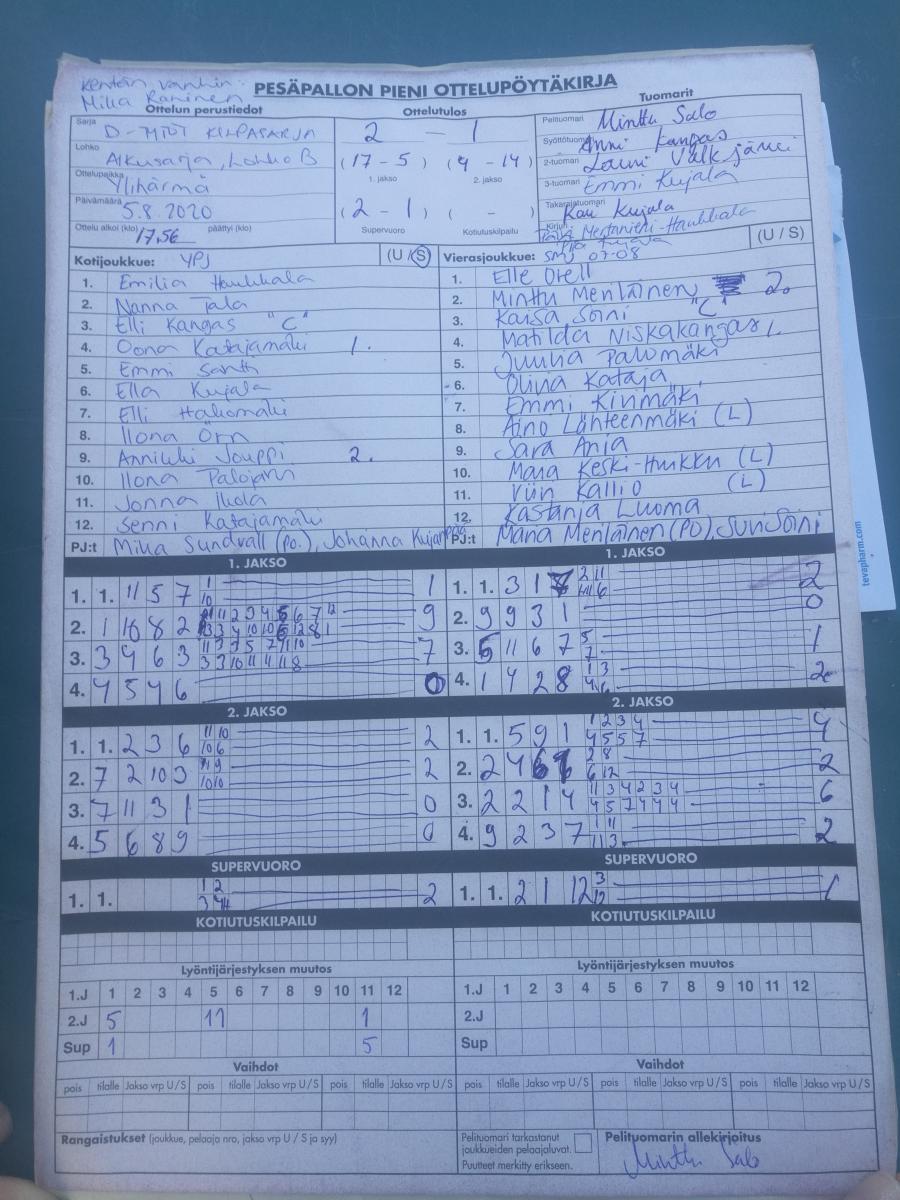 Kentän vanhin:
Milla Raninen
PESÄPALLON PIENI OTTELUPÖYTÄKIRJA
Ottelun perustiedot
Ottelutulos
Tuomarit
Sarja D-TYTÖT KILPASARJA
Lohko Alkusarja, Lohko B
Ottelupaikka Ylihärmä
Päivämäärä 5.8.2020
Ottelu alkoi (klo) 17.56 päättyi (klo)
2 - 1
(17 - 5) (4 - 14)
1. jakso 2. jakso
(2 - 1) ( - )
Supervuoro Kotiutuskilpailu
Pelituomari Minttu Salo
Syöttötuomari Anni Kangas
2-tuomari Lauri Välkjärvi
3-tuomari Emmi Kujala
Takarajatuomari Kau Kujala
Kirjuri Päivi Mertaniemi-Haukkala
Piia Kujala
Kotijoukkue: YPJ (U / S)
1. Emilia Haukkala
2. Nanna Tala
3. Elli Kangas "C"
4. Oona Katajamäki 1.
5. Emmi Santti
6. Ella Kujala
7. Elli Hakomäki
8. Ilona Örn
9. Anniikki Jouppi 2.
10. Ilona Palojärvi
11. Jonna Ikola
12. Senni Katajamäki
PJ:t Mika Sundvall (po.), Johanna Kujanpää
Vierasjoukkue: SMJ 07-08 (U / S)
1. Elle Orell
2. Minttu Menläinen 2.
3. Kaisa Soini "C"
4. Matilda Niskakangas 1.
5. Juulia Palomäki
6. Olivia Kataja
7. Emmi Kivimäki
8. Aino Lähteenmäki (L)
9. Sara Ania
10. Maria Keski-Hirkku (L)
11. Viivi Kallio (L)
12. Kastanja Luoma
PJ:t Maria Menläinen (PO), Suvi Soini
1. JAKSO
1. 1. 11 5 7 1
1
10
2. 1 10 8 2 9
3. 3 4 6 3 7
4. 4 5 4 6 0
1. JAKSO
1. 1. 3 1 2
2. 9 9 3 1 0
3. 5 11 6 7 1
5
7
4. 1 4 2 8 2
1 3
4 6
2. JAKSO
1. 1. 2 3 6 2
11 10
10 6
2. 7 2 10 3 2
11 9
10 10
3. 7 11 3 1 0
4. 5 6 8 9 0
2. JAKSO
1. 1. 5 9 1 4
1 2 3 4
4 5 5 7
2. 2 4 6 1 2
2 8
6 12
3. 2 2 1 4 6
11 3 4 2 3 4
4 5 7 4 4 4
4. 9 2 3 7 2
1 11
11 3
SUPERVUORO
1. 1. 2
1 2
3 4
SUPERVUORO
1. 1. 2 1 12 1
3
12
KOTIUTUSKILPAILU
KOTIUTUSKILPAILU
Lyöntijärjestyksen muutos
1.J 1 2 3 4 5 6 7 8 9 10 11 12
2.J 5 11 1
Sup 1 5
Lyöntijärjestyksen muutos
1.J 1 2 3 4 5 6 7 8 9 10 11 12
2.J
Sup
Vaihdot
pois tilalle Jakso vrp U / S pois tilalle Jakso vrp U / S pois tilalle Jakso vrp U / S
Vaihdot
pois tilalle Jakso vrp U / S pois tilalle Jakso vrp U / S pois tilalle Jakso vrp U / S
Rangaistukset (joukkue, pelaaja nro, jakso vrp U / S ja syy)
Pelituomari tarkastanut
joukkueiden pelaajaluvat.
Puutteet merkitty erikseen.
Pelituomarin allekirjoitus
Minttu Salo
tevapharm.com